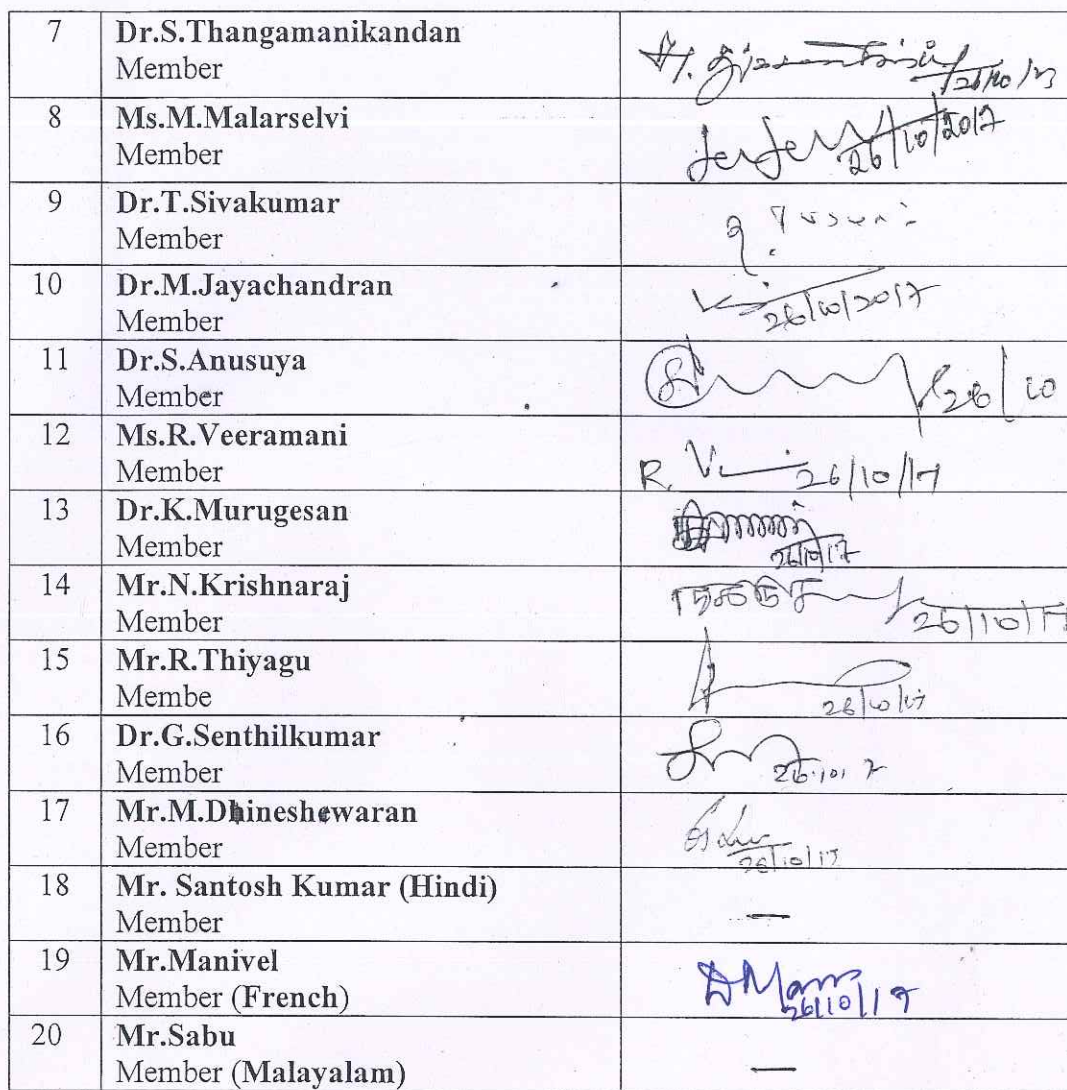 7 Dr.S.Thangamanikandan
Member
26/10/
8 Ms.M.Malarselvi
Member
26/10/2017
9 Dr.T.Sivakumar
Member
10 Dr.M.Jayachandran
Member
26/10/2017
11 Dr.S.Anusuya
Member
26/10
12 Ms.R.Veeramani
Member
R. V 26/10/17
13 Dr.K.Murugesan
Member
26/10/17
14 Mr.N.Krishnaraj
Member
26/10/17
15 Mr.R.Thiyagu
Membe
26/10/17
16 Dr.G.Senthilkumar
Member
17 Mr.M.Dhineshewaran
Member
26/10/17
18 Mr. Santosh Kumar (Hindi)
Member
—
19 Mr.Manivel
Member (French)
26/10/17
20 Mr.Sabu
Member (Malayalam)
—